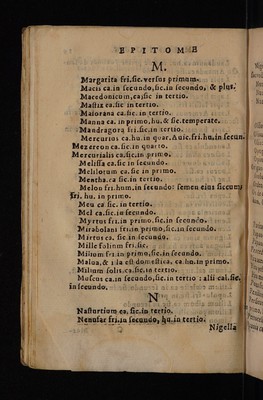 EPITOME
M.
Margarita fri.sic.versus primum.
Macis ca.in secundo,sic.in secundo, & plus.
Macedonicum,ca,sic in tertio.
Mastix ca.sic in tertio.
Maiorana ca.sic. in tertio.
Manna ca.in primo,hu.& sic.temperate.
Mandragora fri.sic.in tertio.
Mercurius ca.hu.in quar.Auic.fri.hu.in secun.
Mezereon ca.sic. in quarto.
Mercurialis ca.sic.in primo.
Melissa ca.sic in secundo.
Melilotum ca.sic in primo.
Mentha.ca sic. in tertio.
Melon fri.hum.in secundo: semen eius siccum
fri. hu. in primo.
Meu ca. sic. in tertio.
Mel ca.sic. in secundo.
Myrtus fri.in primo,sic.in secundo.
Mirabolani fri.in primo,sic.in secundo.
Mirtus ca. sic in secundo.
Mille folium fri.sic.
Milium fri.in primo,sic.in secundo.
Malua,& i la est domestica, ca.hu.in primo.
Milium solis ca.sic.in tertio.
Moscus ca.in secundo,sic.in tertio : alii cal.sic.
in secundo.
N
Nasturtium ca. sic.in tertio.
Nenufar fri.in secundo, hu. in tertio.
Nigella